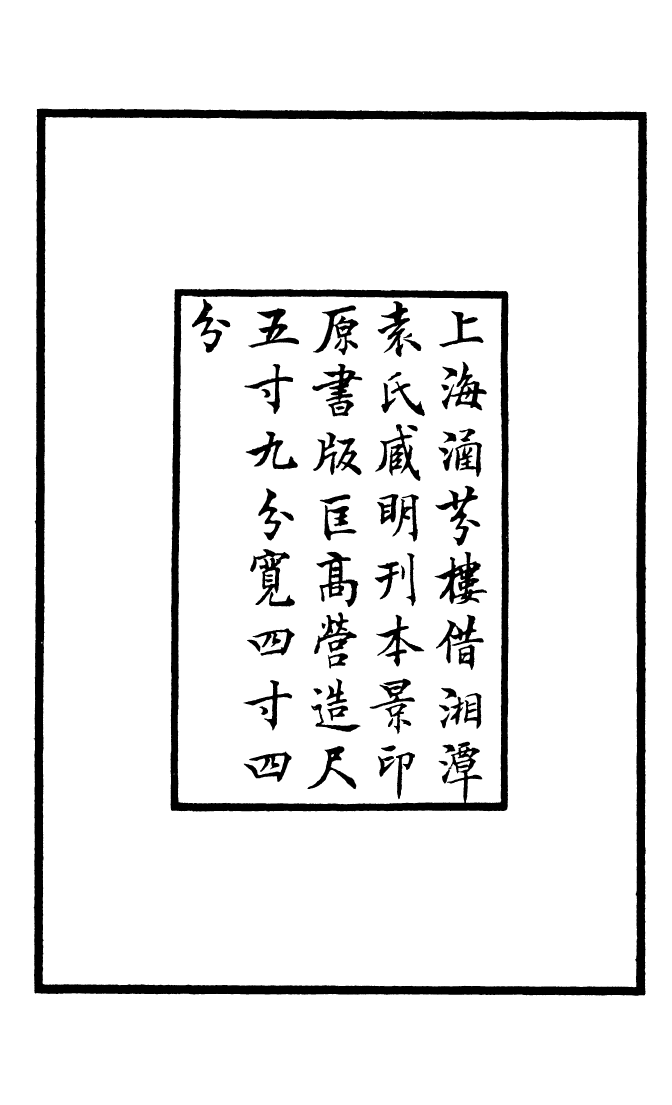 上海涵芬樓借湘潭
袁氏臧明刊本景印
原書版匡高營造尺
五寸九分寬四寸四
分